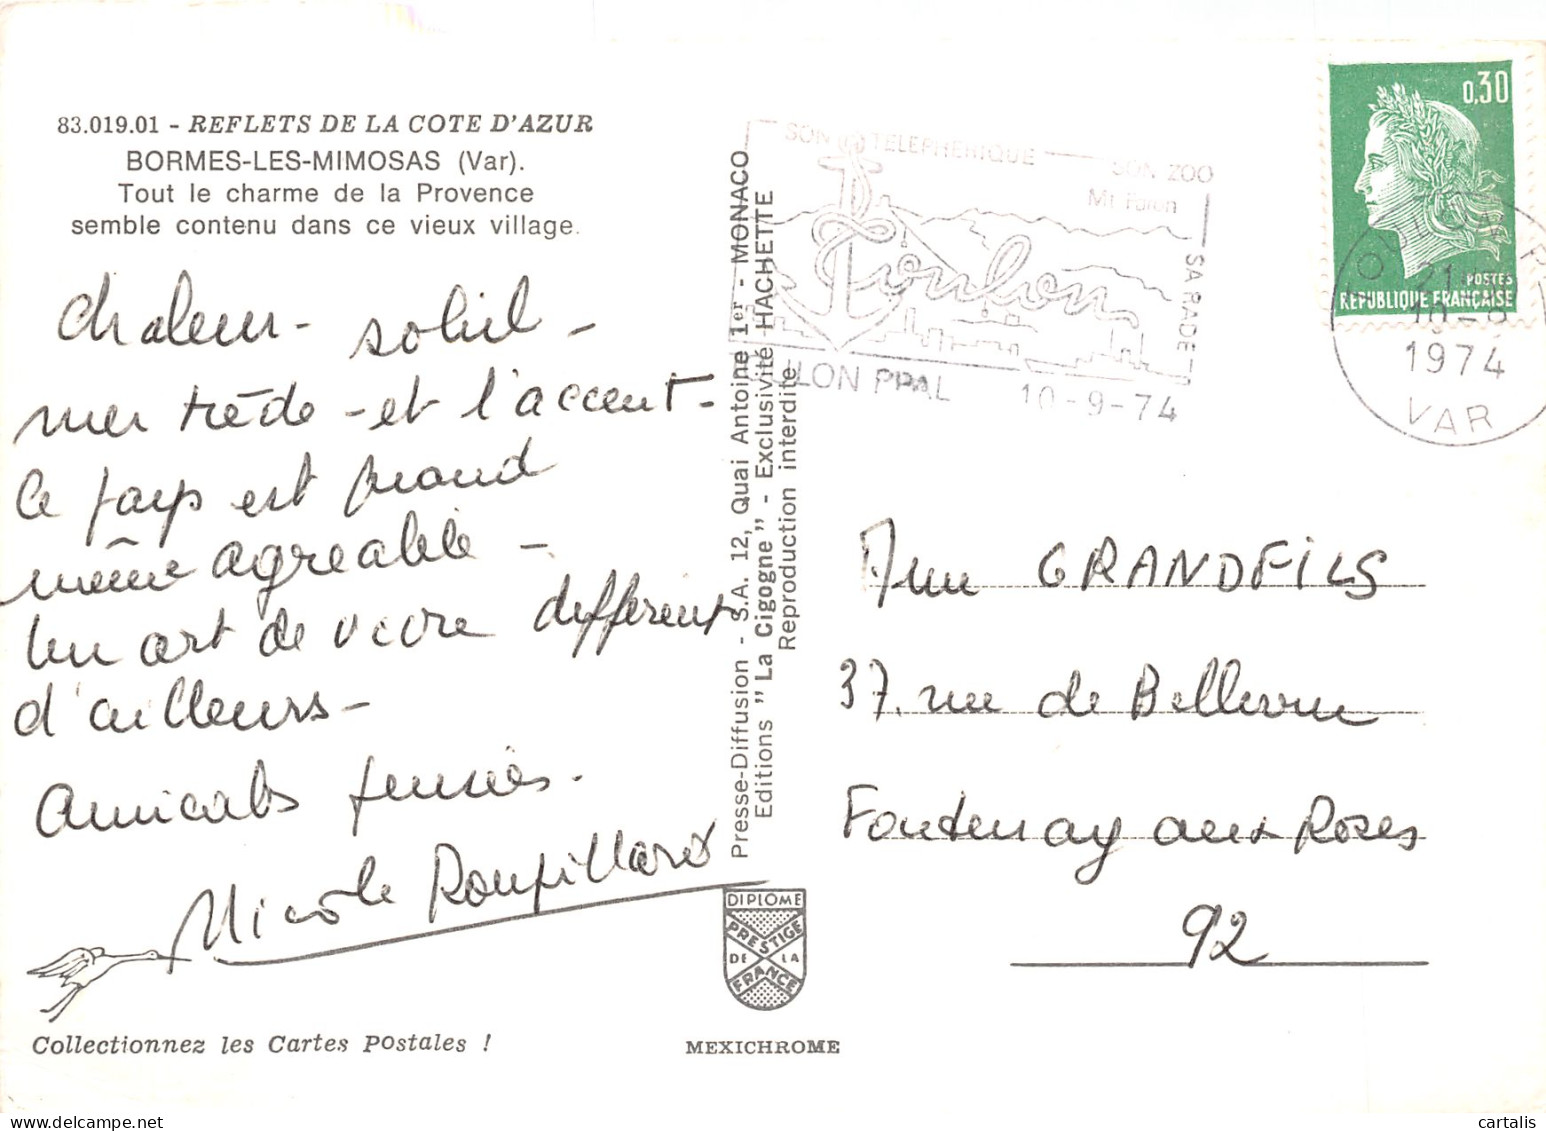 83.019.01 - REFLETS DE LA COTE D'AZUR
BORMES-LES-MIMOSAS (Var).
Tout le charme de la Provence
semble contenu dans ce vieux village.
Chaleur - soleil -
mer tiède - et l'accent -
Ce pays est quand
même agréable -
Un art de vivre différent
d'ailleurs -
Amicales pensées.
Nicole Roupillard
Collectionnez les Cartes Postales !
Presse-Diffusion - S.A. 12, Quai Antoine 1er - MONACO
Editions "La Cigogne" - Exclusivité HACHETTE
Reproduction interdite
DIPLOME
PRESTIGE
DE LA
FRANCE
MEXICHROME
SON TELEPHERIQUE
SON ZOO
Mt Faron
SA RADE
Toulon
TOULON PPAL 10-9-74
0,30
POSTES
REPUBLIQUE FRANÇAISE
TOULON
21
10-9
1974
VAR
Mme GRANDFILS
37. rue de Bellevue
Fontenay aux Roses
92
cartalis